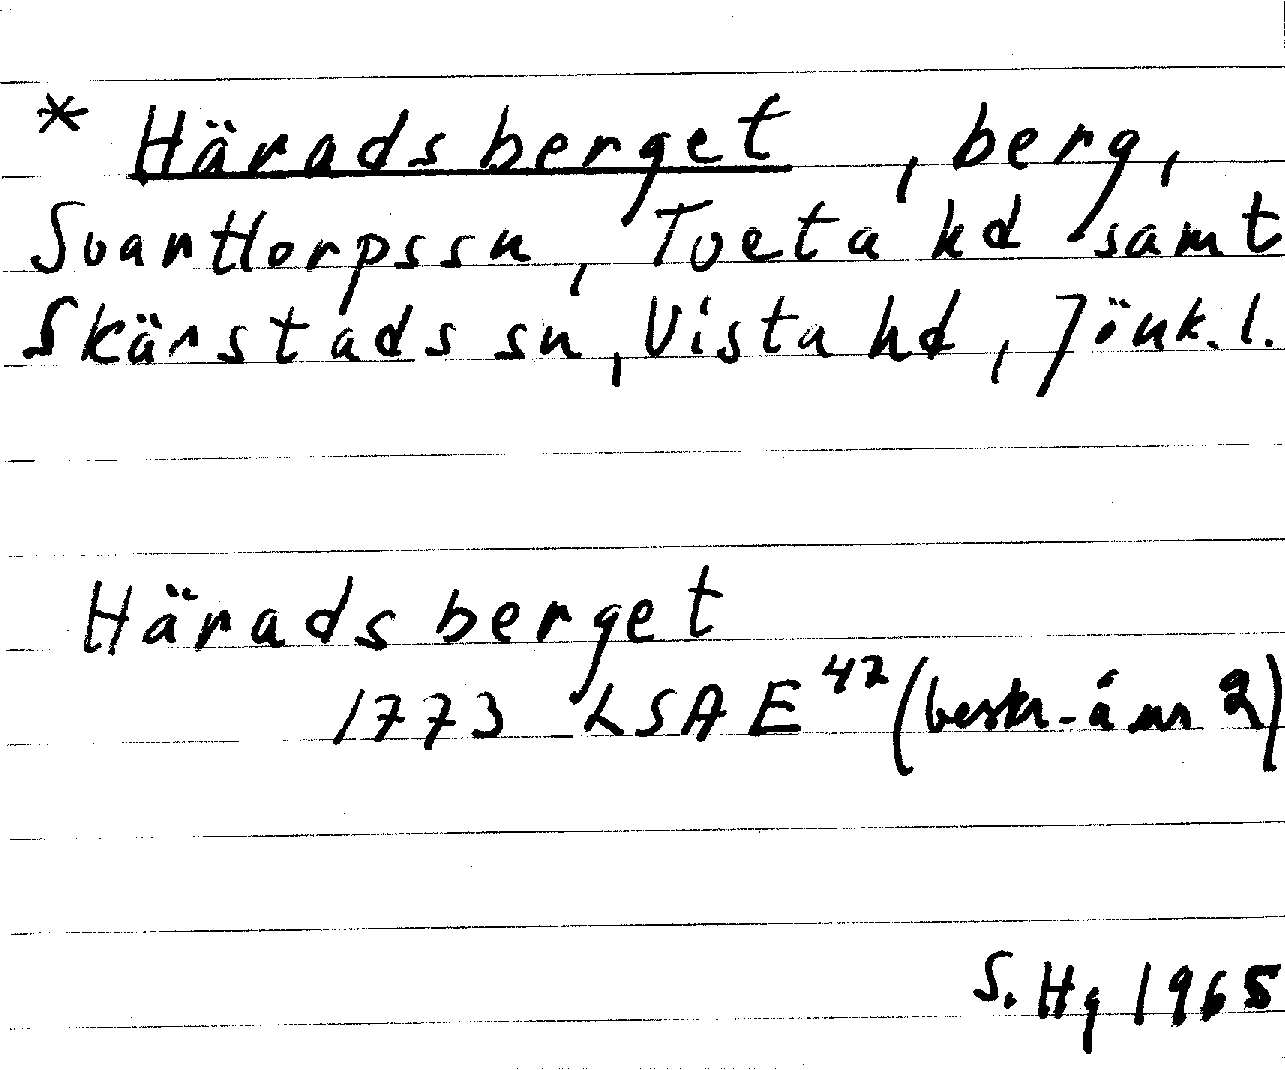 * Häradsberget, berg,
Svarttorps sn, Tveta hd samt
Skärstads sn, Vista hd, Jönk. l.
Häradsberget
1773 LSA E 47 (beskr. å nr 2)
S. Hg 1965